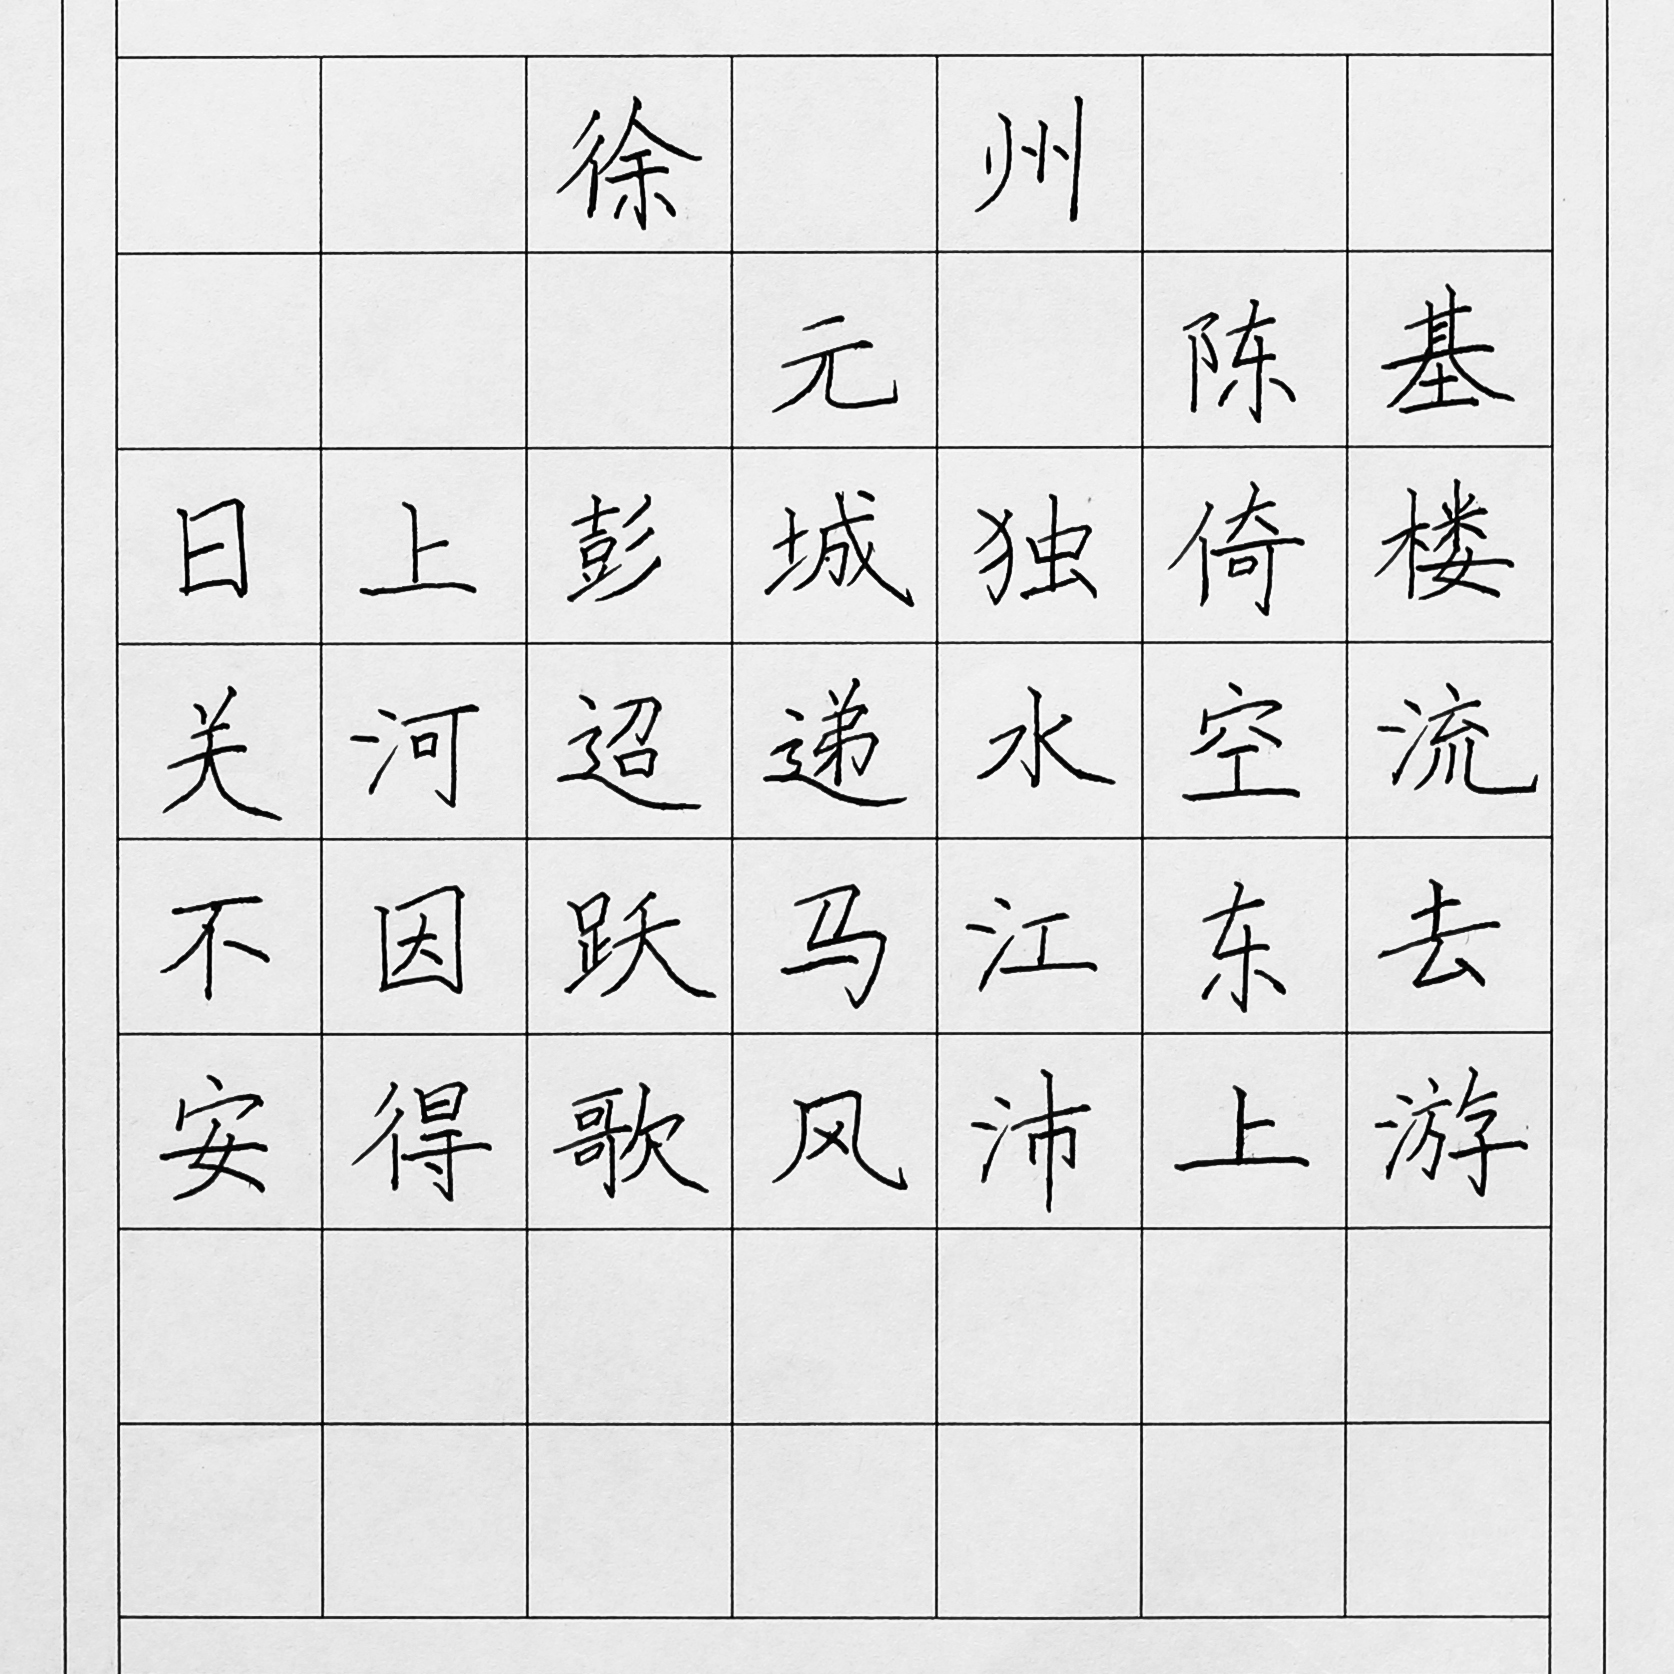 徐州
元 陈基
日上彭城独倚楼
关河迢递水空流
不因跃马江东去
安得歌风沛上游